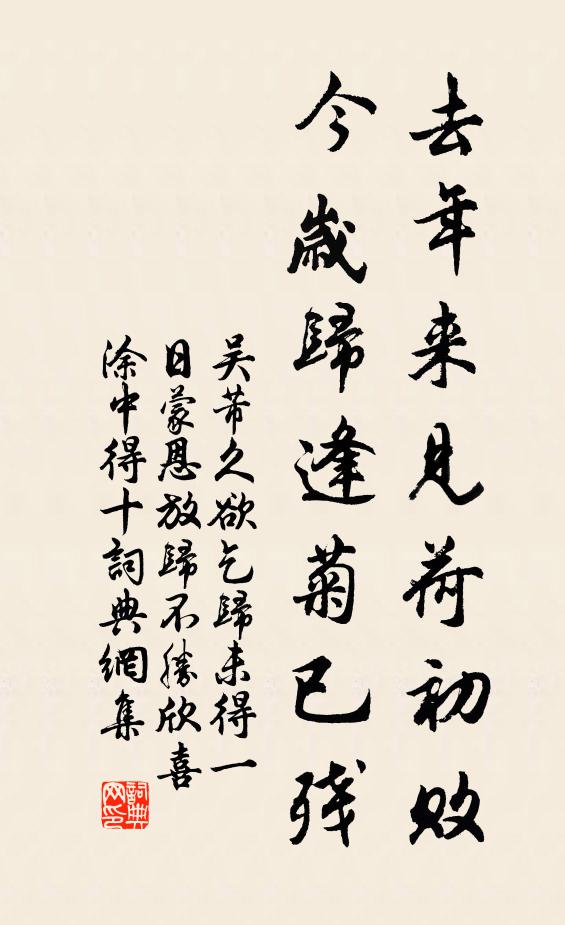 去年来見荷初敗
今歳歸逢菊已残
吴芾久欲乞歸未得一
日蒙恩放歸不勝欣喜
涂中得十詞典網集
詞典网印